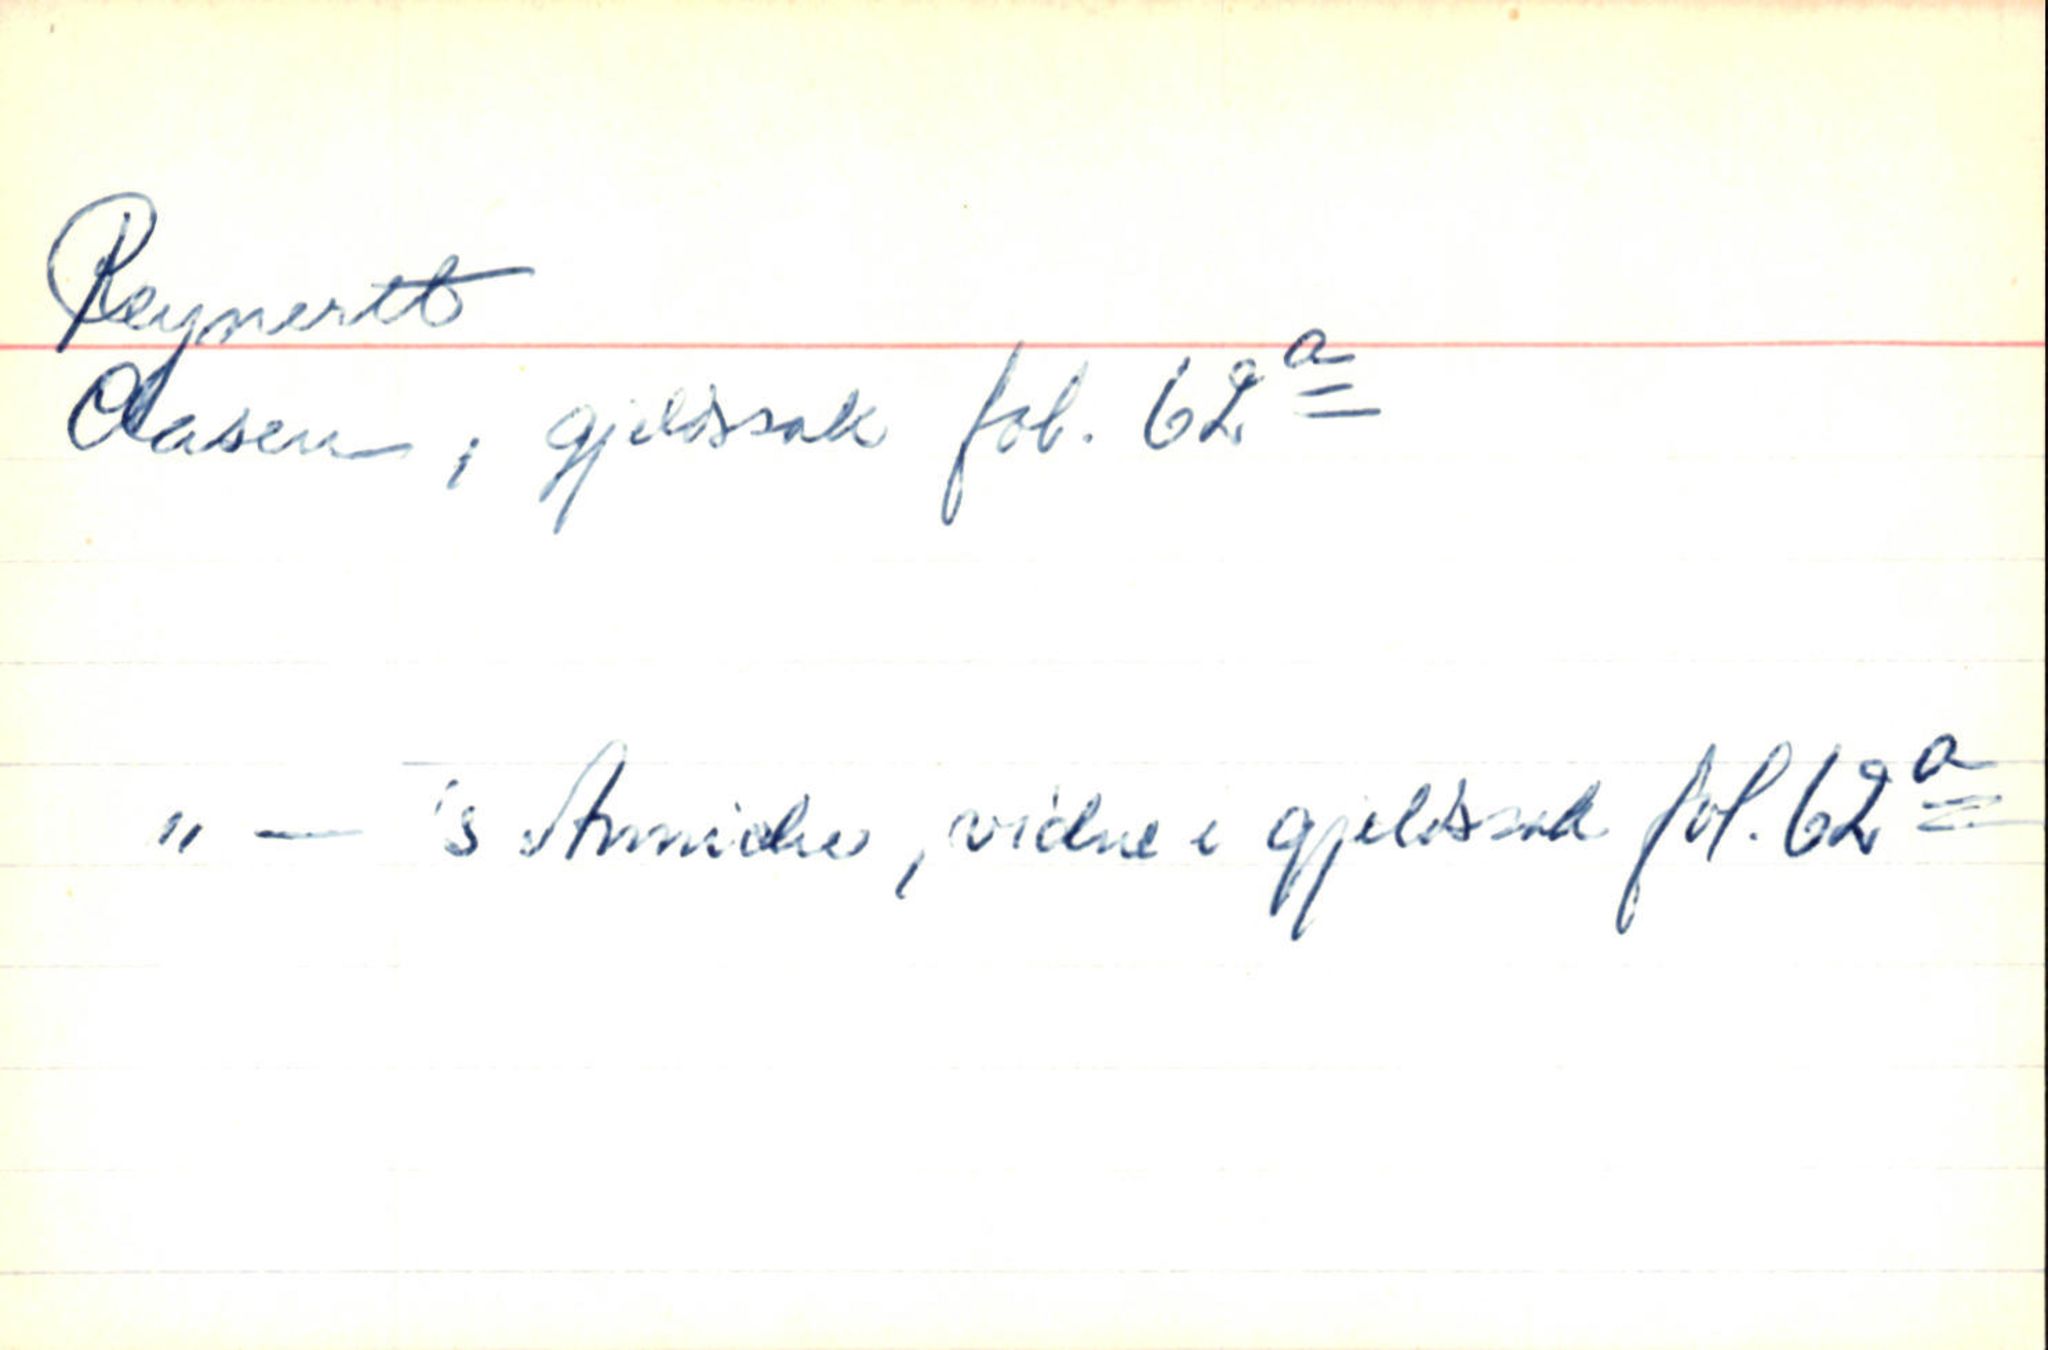 Reynertt
Clasen, gjeldssak fol. 62a
" — 's Annicke, vidne i gjeldssak fol. 62a